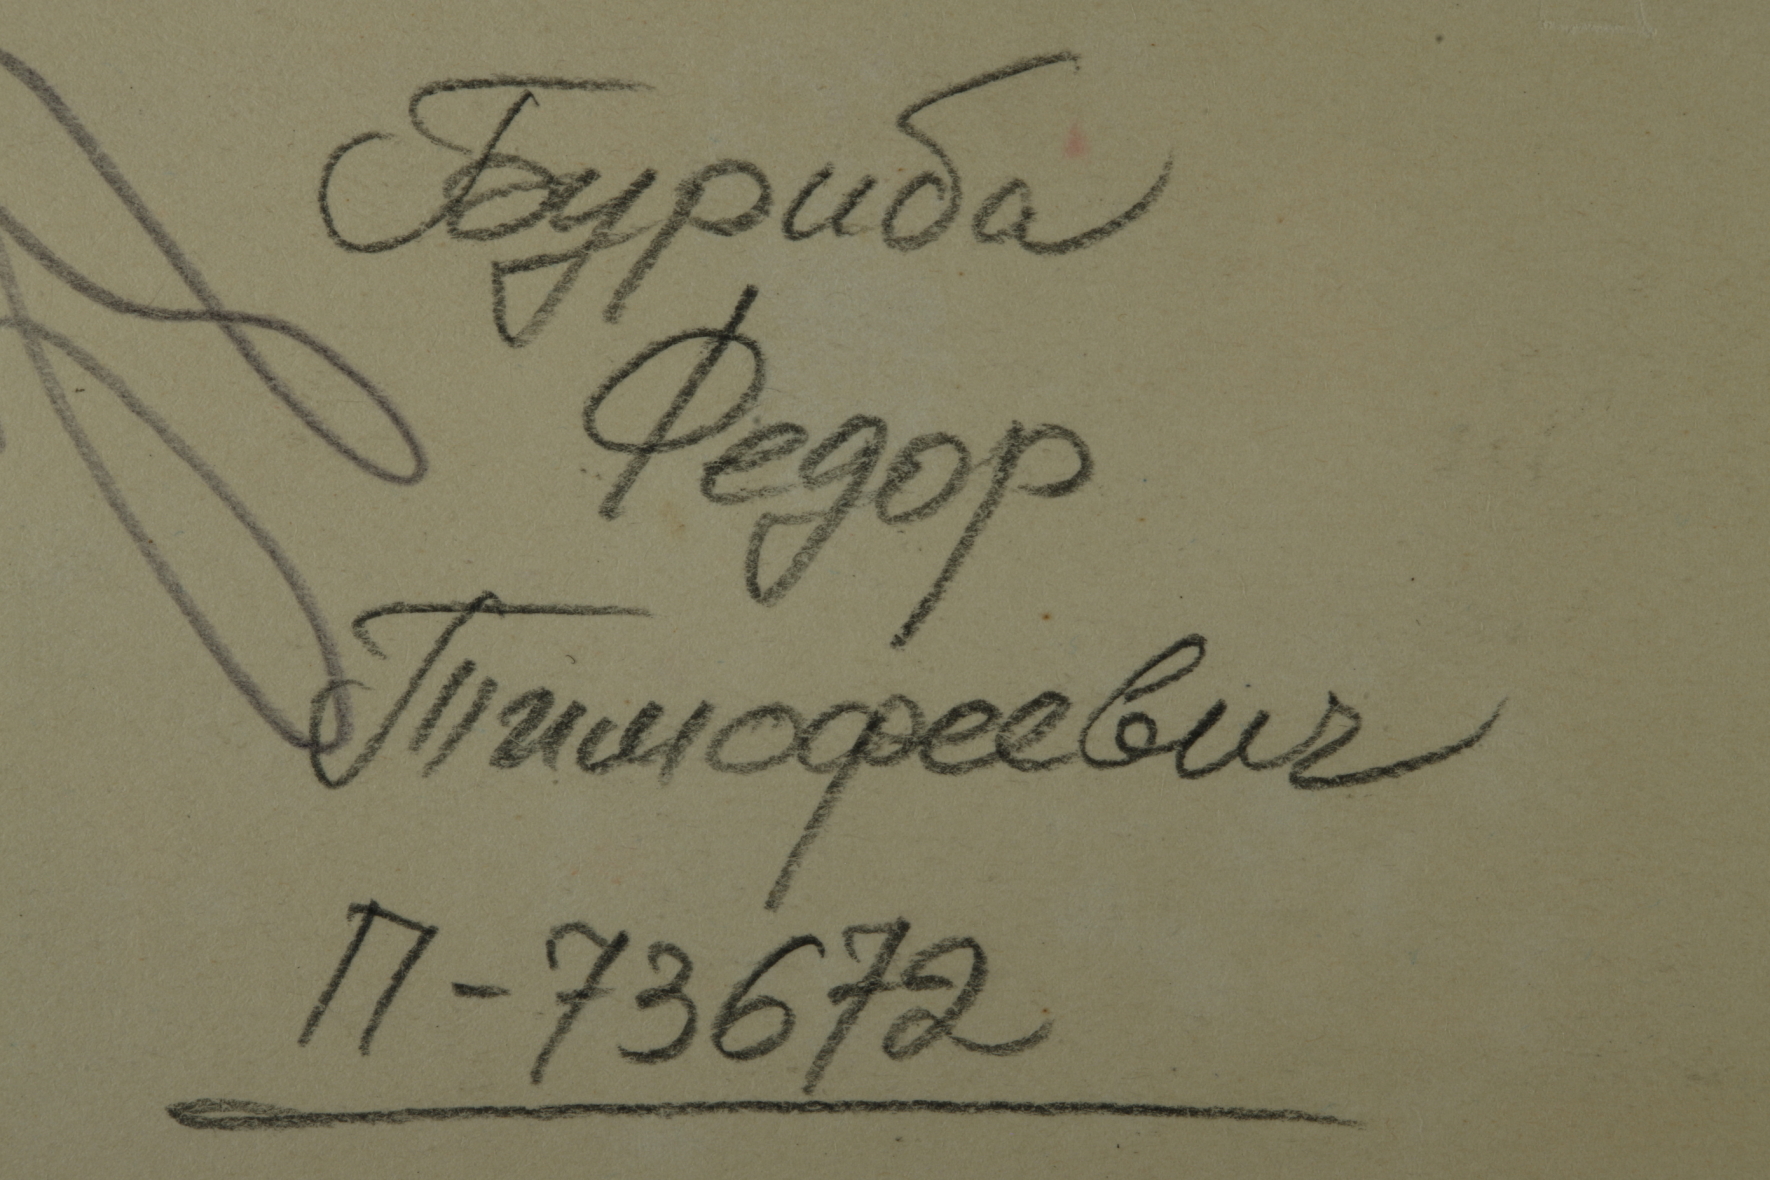 Буриба
Федор
Тимофеевич
П-73672